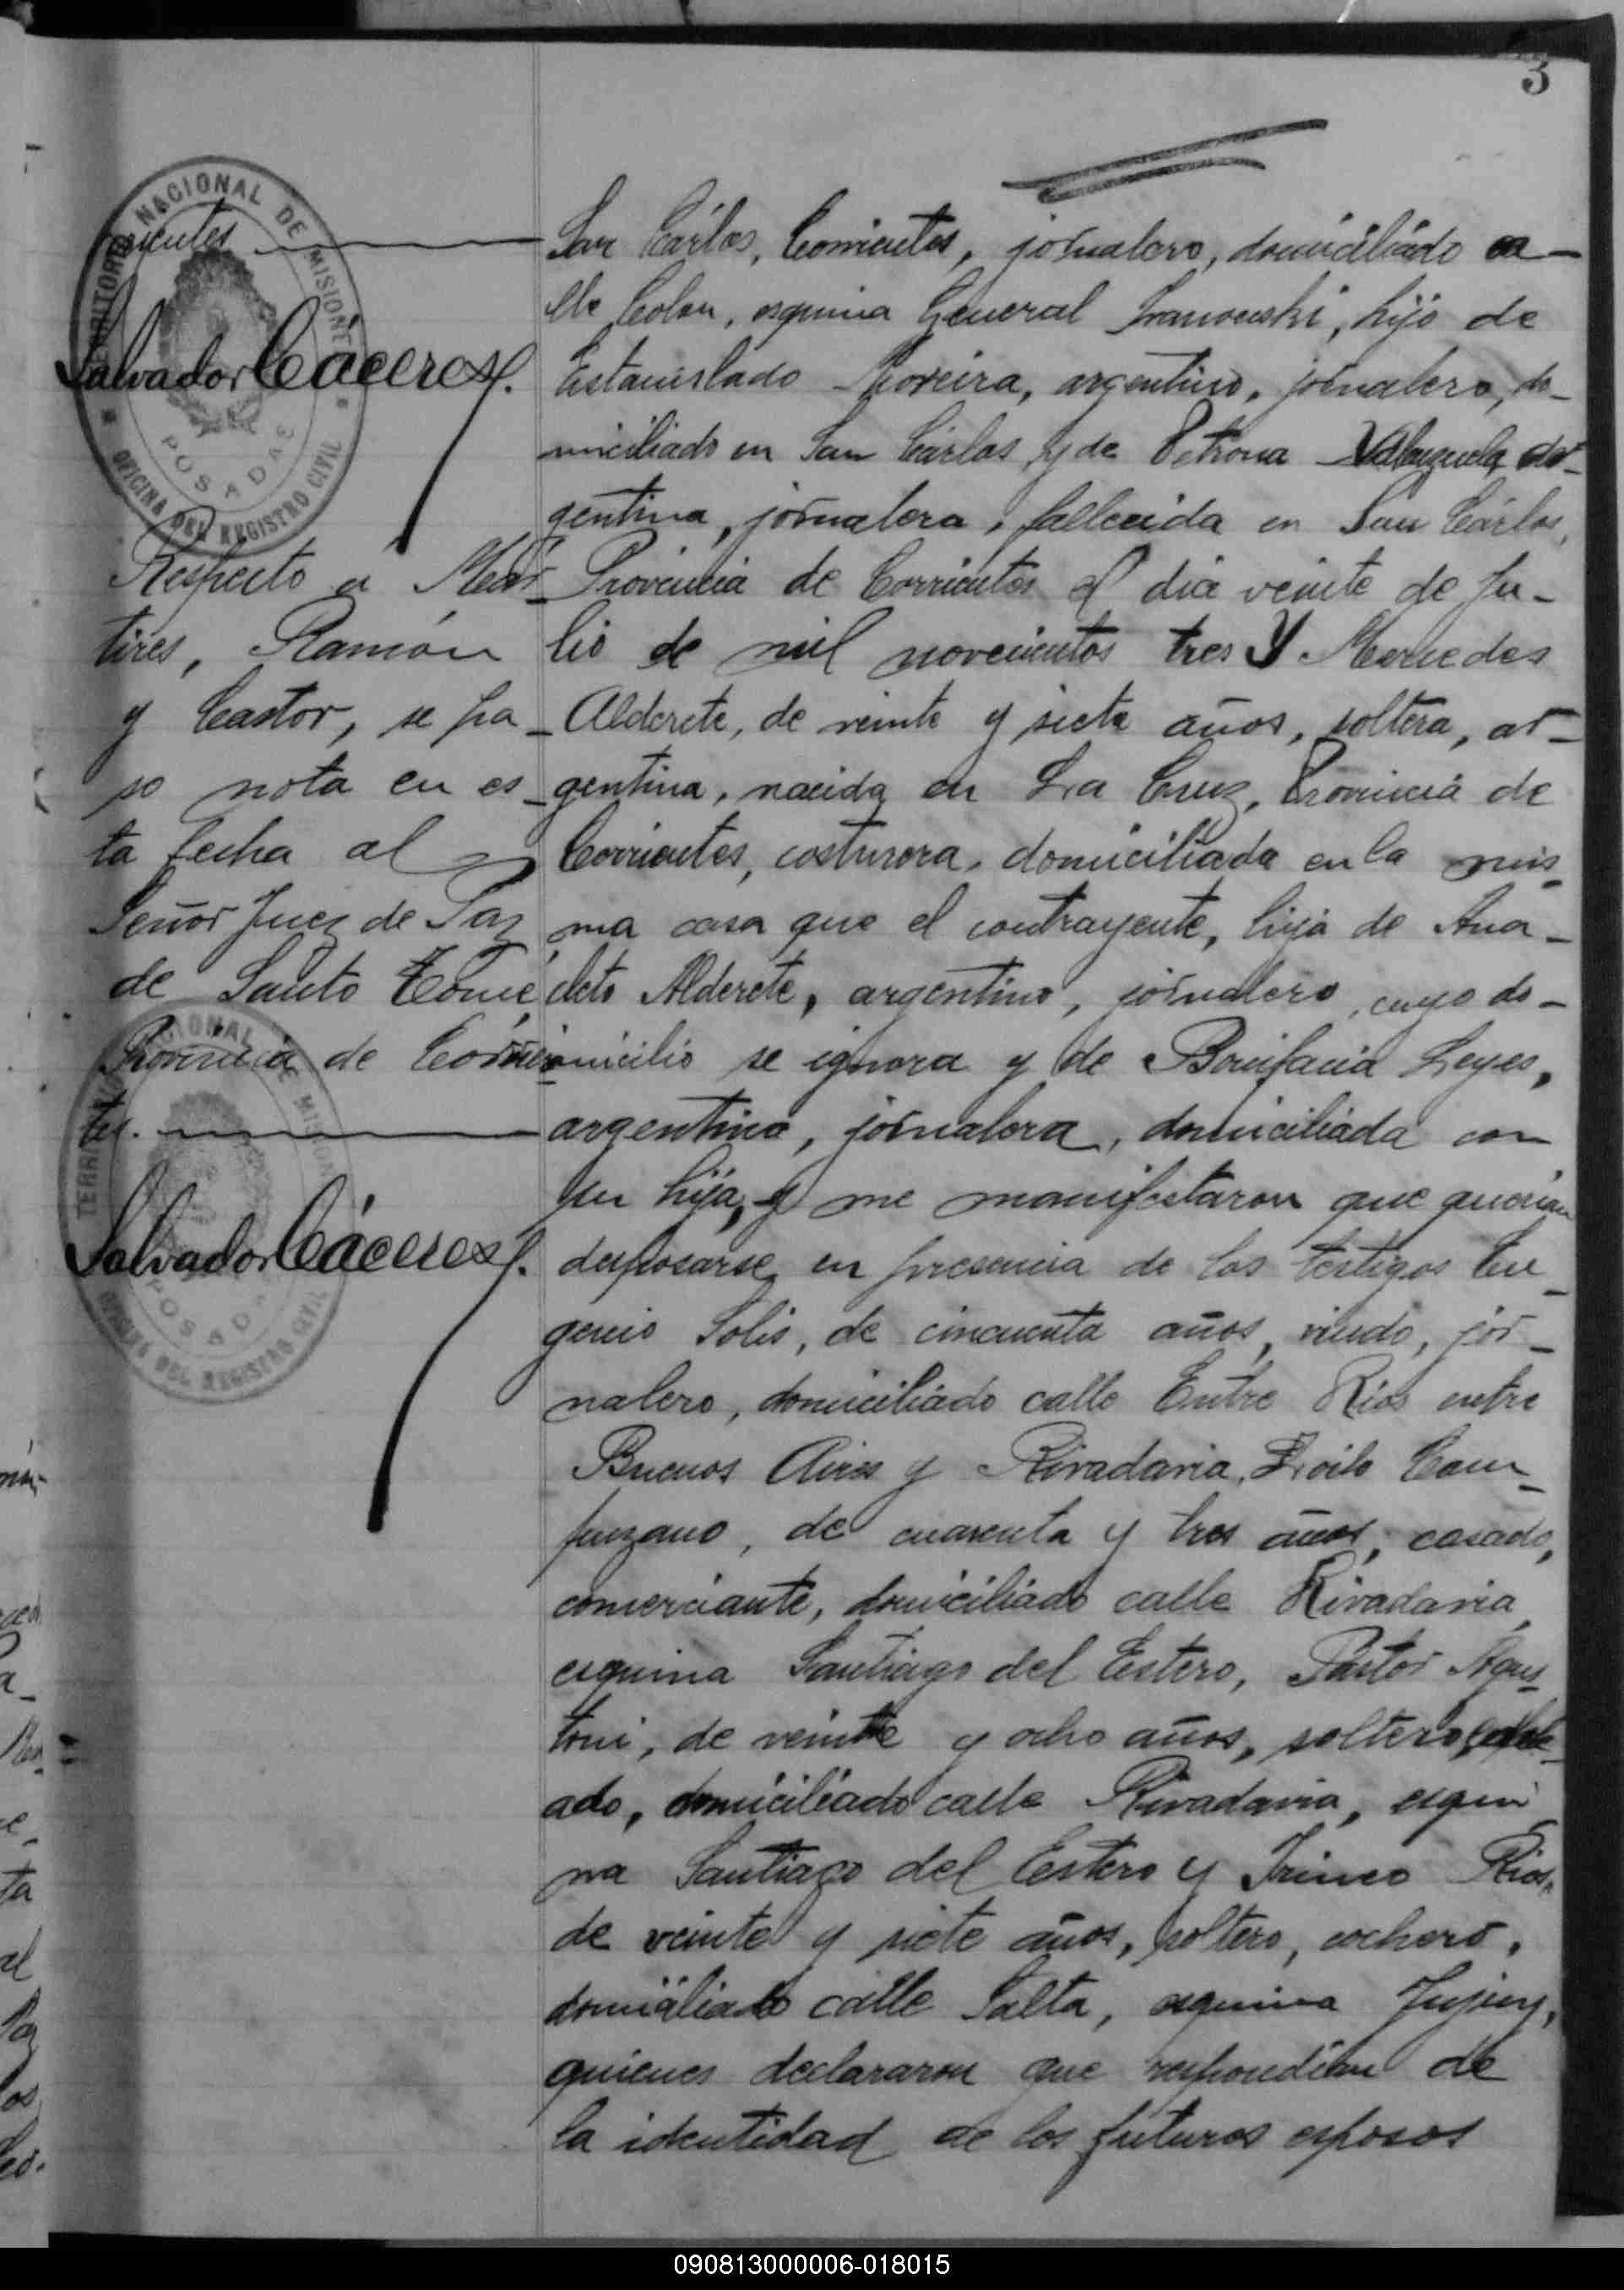 3
TERRITORIO NACIONAL DE MISIONES
POSADAS
OFICINA DEL REGISTRO CIVIL
rrientes
Salvador Cáceres f.
Respecto á Mar-
tires, Ramón
y Castor, se pa-
so nota en es-
ta fecha al
Señor Juez de Paz
de Santo Tomé,
Provincia de Corrien-
tes.
Salvador Cáceres f.
TERRITORIO NACIONAL DE MISIONES
POSADAS
OFICINA DEL REGISTRO CIVIL
San Cárlos, Corrientes, jornalero, domiciliado ca-
lle Colon, esquina General hijo de
Estanislado Moreira, argentino, jornalero, do-
miciliado en San Cárlos y de Petrona Valenzuela, ar-
gentina, jornalera, fallecida en San Cárlos,
Provincia de Corrientes el dia veinte de Ju-
lio de mil novecientos tres Y Mercedes
Alderete, de veinte y siete años, soltera, ar-
gentina, nacida en La Cruz, Provincia de
Corrientes, costurera, domiciliada en la mis-
ma casa que el contrayente, hija de Ana-
cleto Alderete, argentino, jornalero, cuyo do-
micilio se ignora y de Bonifacia Leyes,
argentina, jornalera, domiciliada con
su hija, y me manifestaron que querian
desposarse en presencia de los testigos Eu-
genio Solis, de cincuenta años, viudo, jor-
nalero, domiciliado calle Entre Rios entre
Buenos Aires y Rivadavia, Zoilo Cam-
puzano, de cuarenta y tres años, casado,
comerciante, domiciliado calle Rivadavia,
esquina Santiago del Estero, Pastor Agus-
toni, de veinte y ocho años, soltero, emple-
ado, domiciliado calle Rivadavia, esqui-
na Santiago del Estero y Irineo Rios,
de veinte y siete años, soltero, cochero,
domiciliado calle Salta, esquina Jujuy,
quienes declararon que respondian de
la identidad de los futuros esposos
090813000006-018015